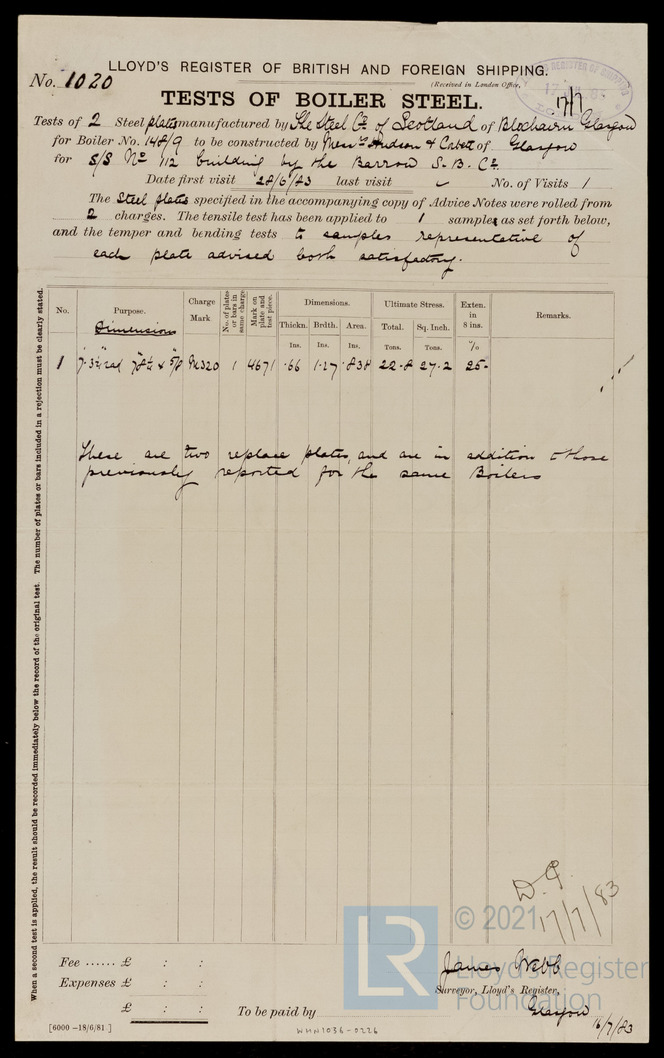 LLOYD'S REGISTER OF BRITISH AND FOREIGN SHIPPING.
No. 1020
(Received in London Office,
17/7
TESTS OF BOILER STEEL.
Tests of 2 Steel plates manufactured by The Steel Co. of Scotland of Blochairn Glasgow
for Boiler No. 148/9 to be constructed by Mess rs Hudson & Corbett of Glasgow
for S/S No 112 building by the Barrow S. B. Co.
Date first visit 28/6/83 last visit No. of Visits 1
The Steel plates specified in the accompanying copy of Advice Notes were rolled from
2 charges. The tensile test has been applied to 1 samples as set forth below,
and the temper and bending tests to samples representative of
each plate advised both satisfactory.
When a second test is applied, the result should be recorded immediately below the record of the original test. The number of plates or bars included in a rejection must be clearly stated.
No. Purpose. Charge Mark No. of plates or bars in same charge Mark on plate and test piece. Dimensions. Ultimate Stress. Exten. in 8 ins. Remarks.
Dimensions Thickn. Brdth. Area. Total. Sq. Inch.
Ins. Ins. Ins. Tons. Tons. %
1 M320 1 4671 .66 1.27 .838 22.8 27.2 25
These are two replace plates, and are in addition to those
previously reported for the same Boilers
D.
17/7/83
© 2021
LR
Lloyd's Register
Foundation
Fee ...... £ : :
Expenses £ : :
£ : :
James Webb
Surveyor, Lloyd's Register,
To be paid by
Glasgow
16/7/83
[6000 —18/6/81]
WHN1036-0226